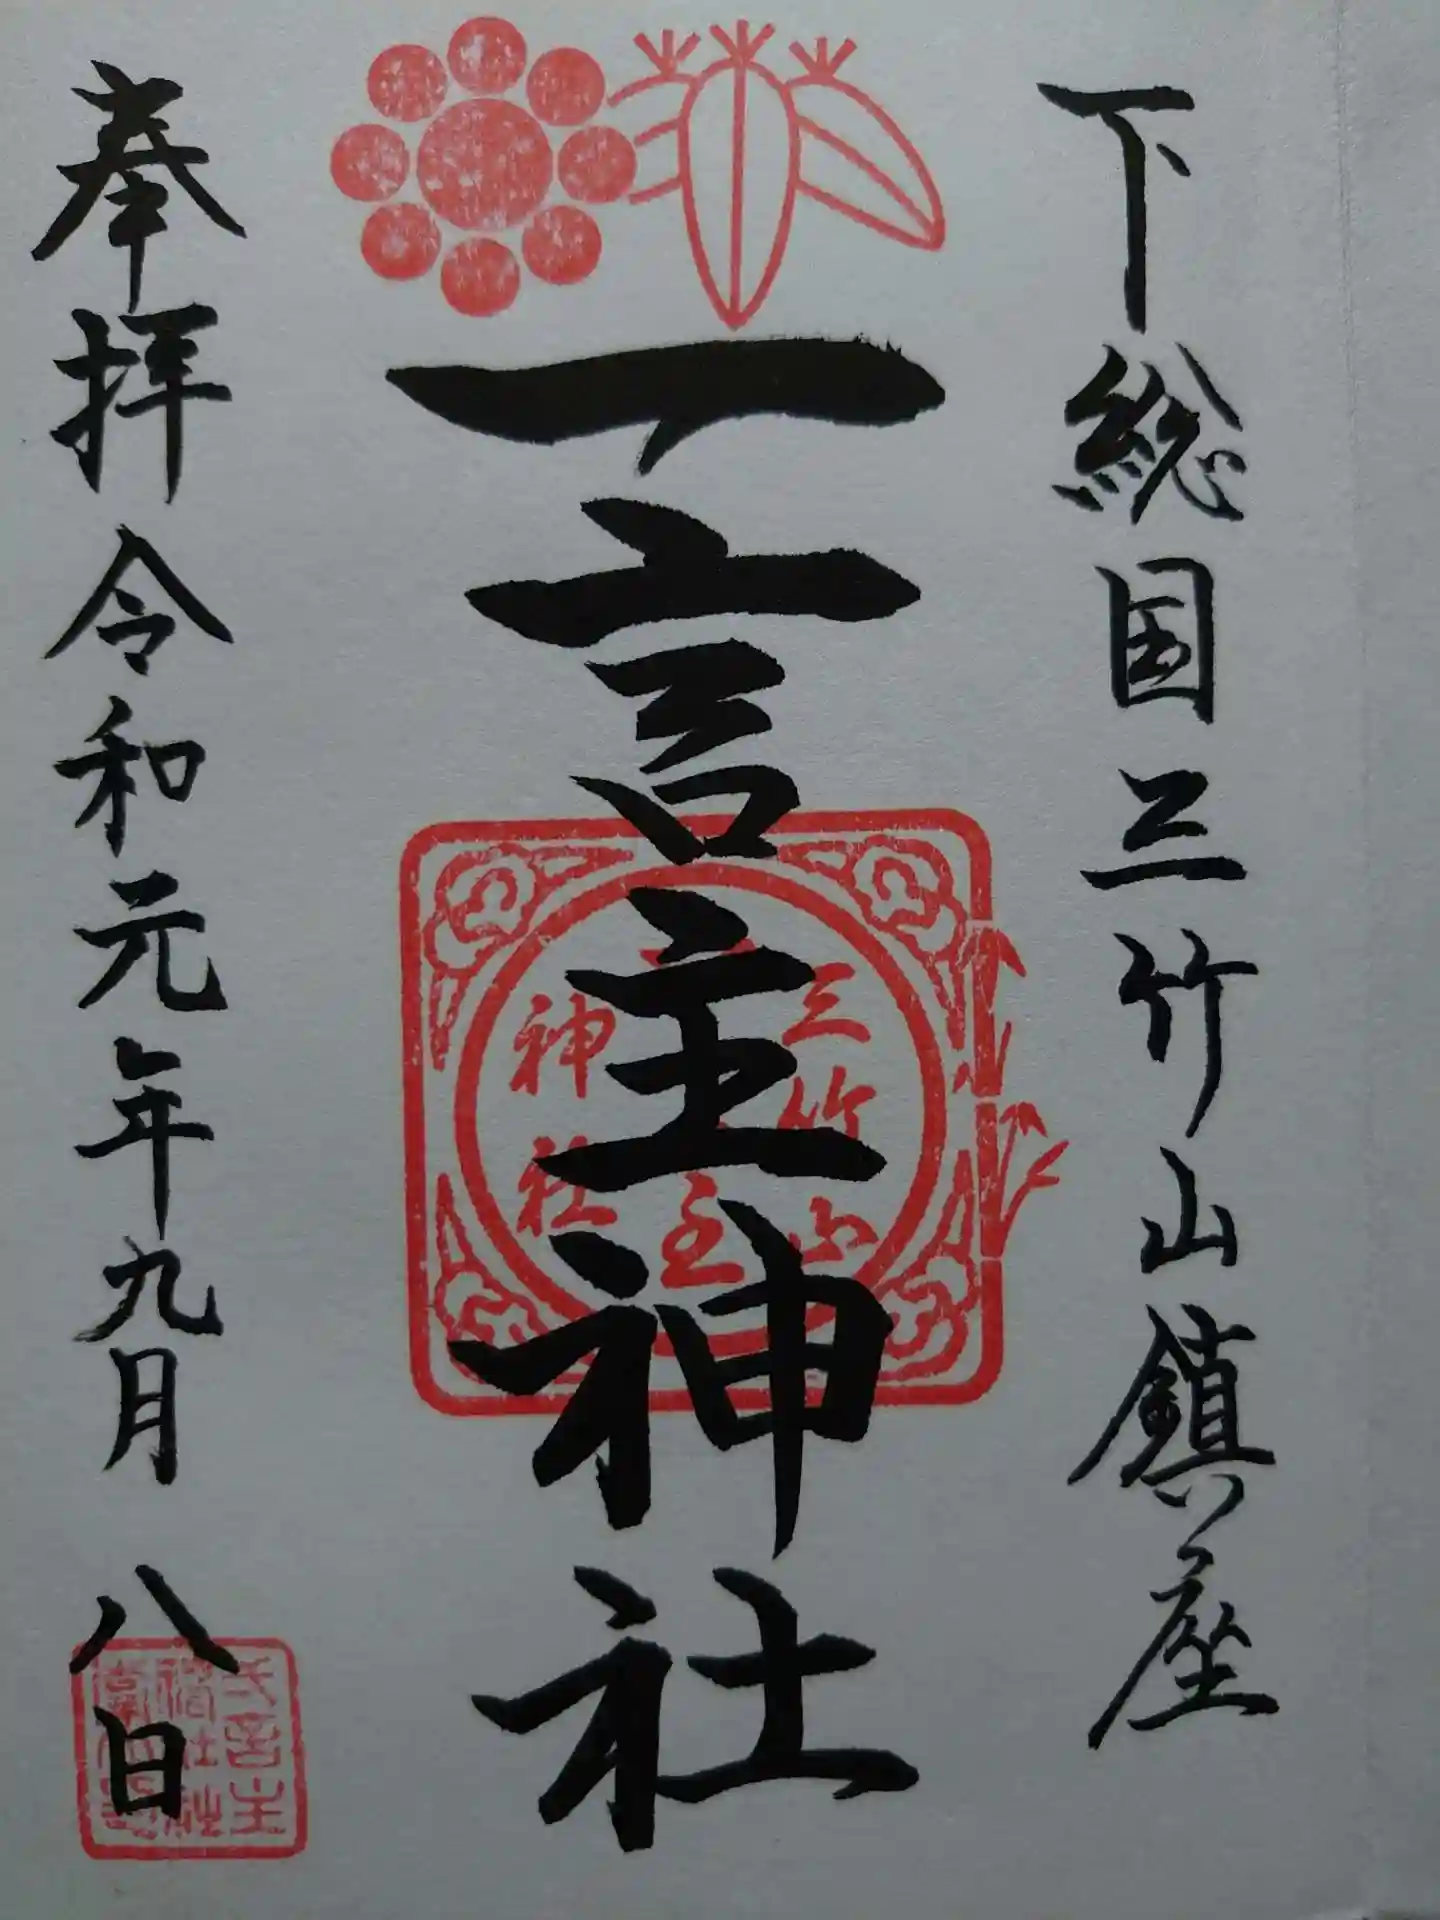 下総国三竹山鎮座
一言主神社
三竹山
主
神社
奉拝令和元年九月八日